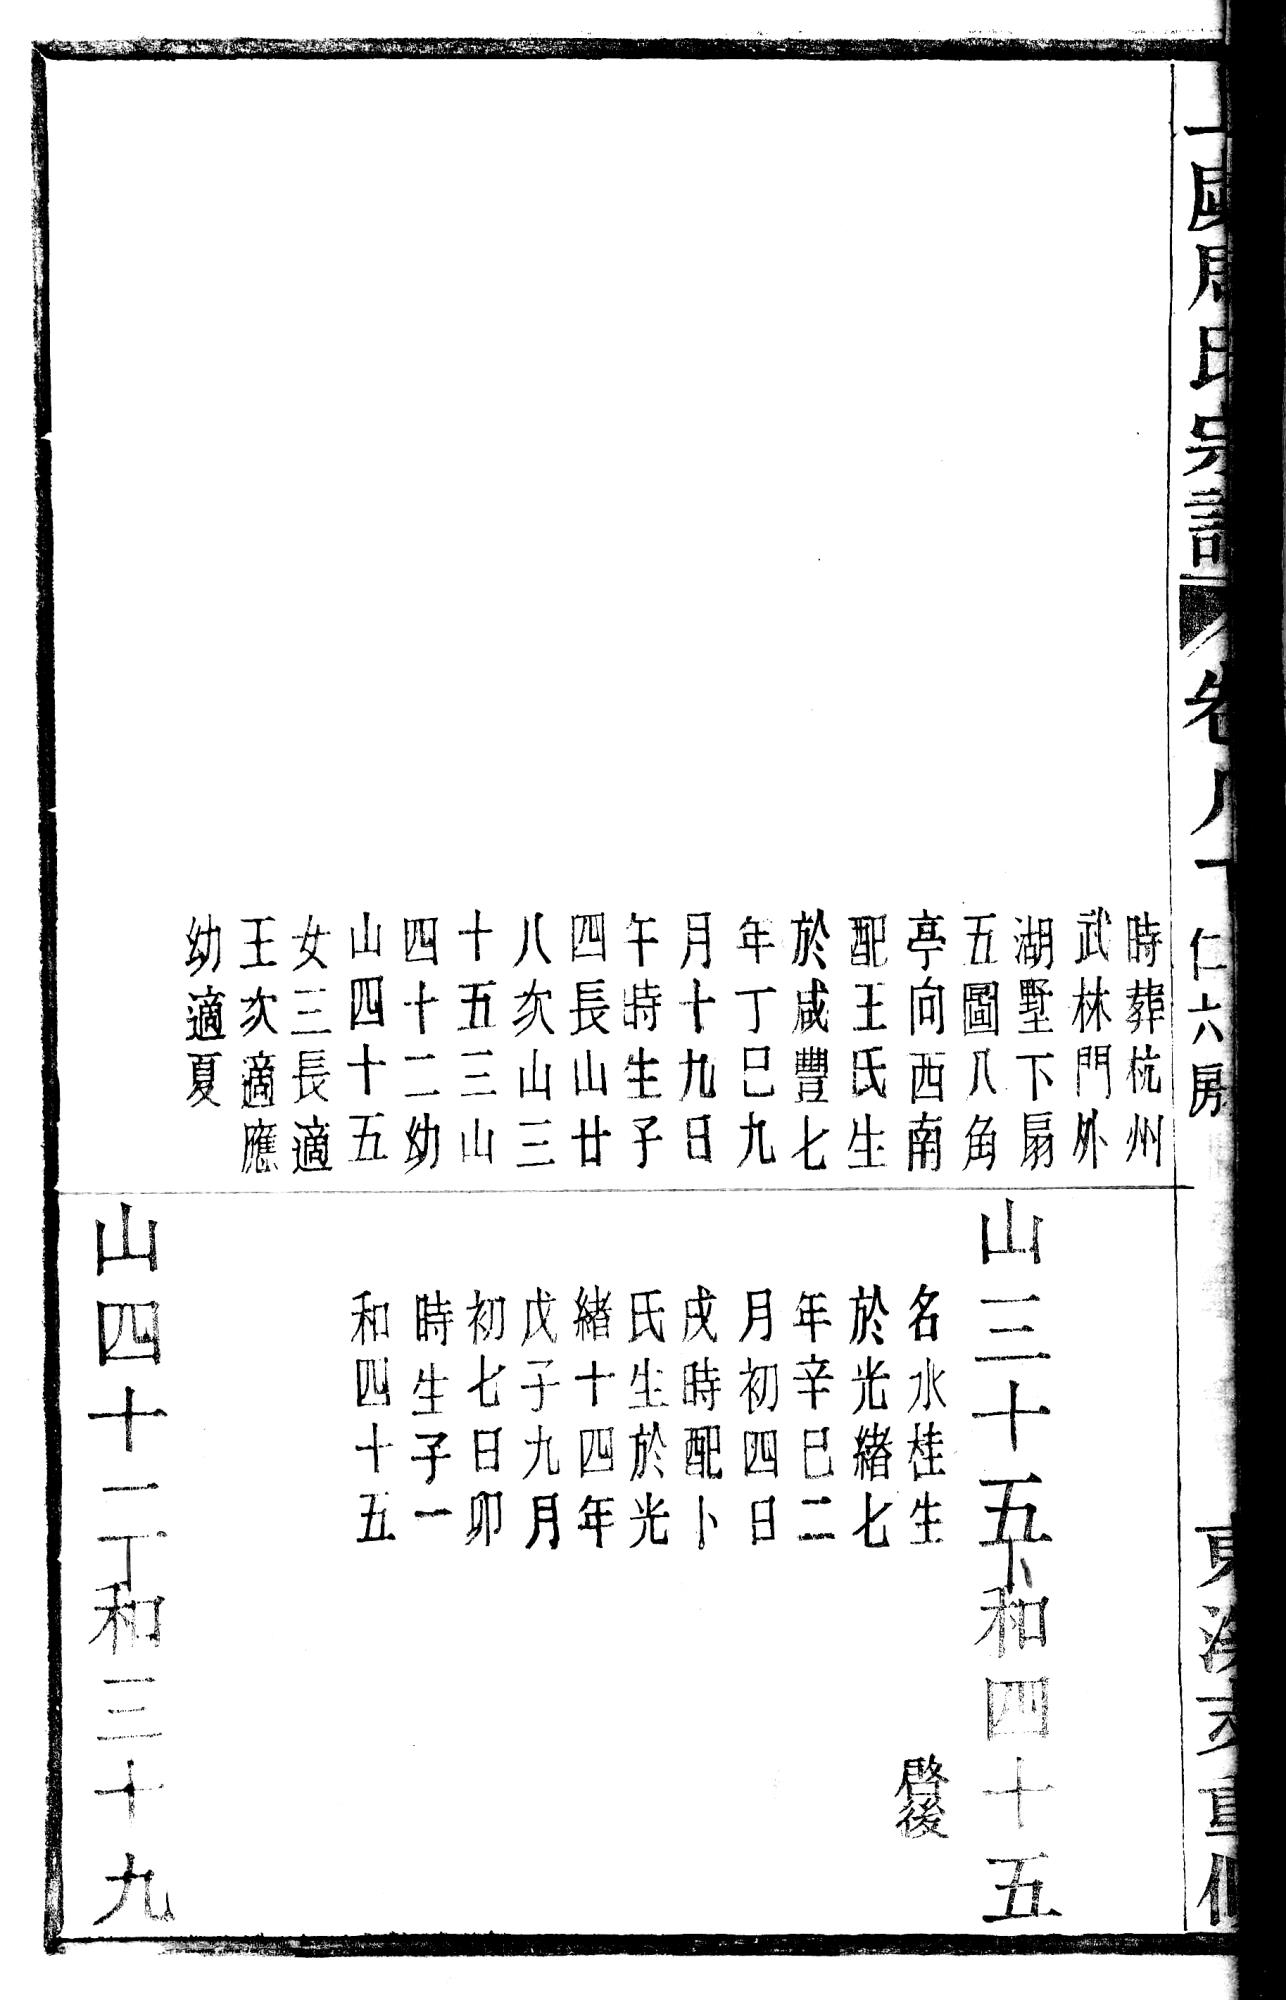 虞周氏宗譜
卷八十
仁六房
重修
時葬杭州
武林門外
湖墅下扇
五圖八角
亭向西南
配王氏生
於咸豐七
年丁巳九
月十九日
午時生子
四長山廿
八次山三
十五三山
四十二幼
山四十五
女三長適
王次適應
幼適夏
山三十五卜和四十五
啓後
名水桂生
於光緒七
年辛巳二
月初四日
戌時配卜
氏生於光
緒十四年
戊子九月
初七日卯
時生子一
和四十五
山四十二丁和三十九